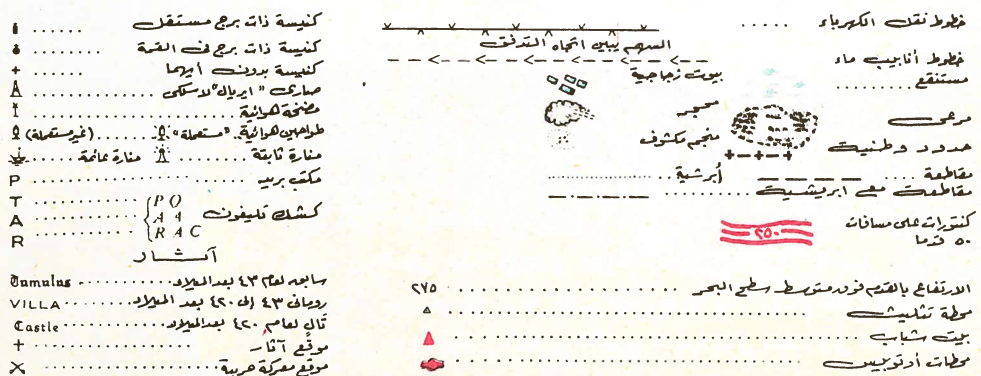 خطوط نقل الكهرباء .....
السهم يبين اتجاه التدفق
خطوط أنابيب ماء
بيوت زجاجية
مستنقع .........
محجر
مرعى
منجم مكشوف
حدود وطنية
مقاطعة .... أبرشية ..............
مقاطعة مع ابريشية .........
كنتورات على مسافات
٥٠ قدما
٢٥٠
الارتفاع بالقدم فوق متوسط سطح البحر ٢٧٥
محطة تثليث
بيت شباب
محطات أوتوبيس
كنيسة ذات برج مستقل ......
كنيسة ذات برج فى القمة ........
كنيسة بدون أيهما ...... +
صارى "ايريال" لاسلكى
مضخة هوائية
طواحين هوائية، "مستعملة" (غير مستعملة)
منارة ثابتة ........ منارة عائمة ....
مكتب بريد ............ P
كشك تليفون PO ........ T
AA ........ A
RAC ........ R
آثــار
سابعه لعام ٤٣ بعد الميلاد ........ Tumulus
رومانى ٤٣ إلى ٤٢٠ بعد الميلاد ...... VILLA
تالى لعام ٤٢٠ بعد الميلاد ........ Castle
موقع آثار ............ +
موقع معركة حربية